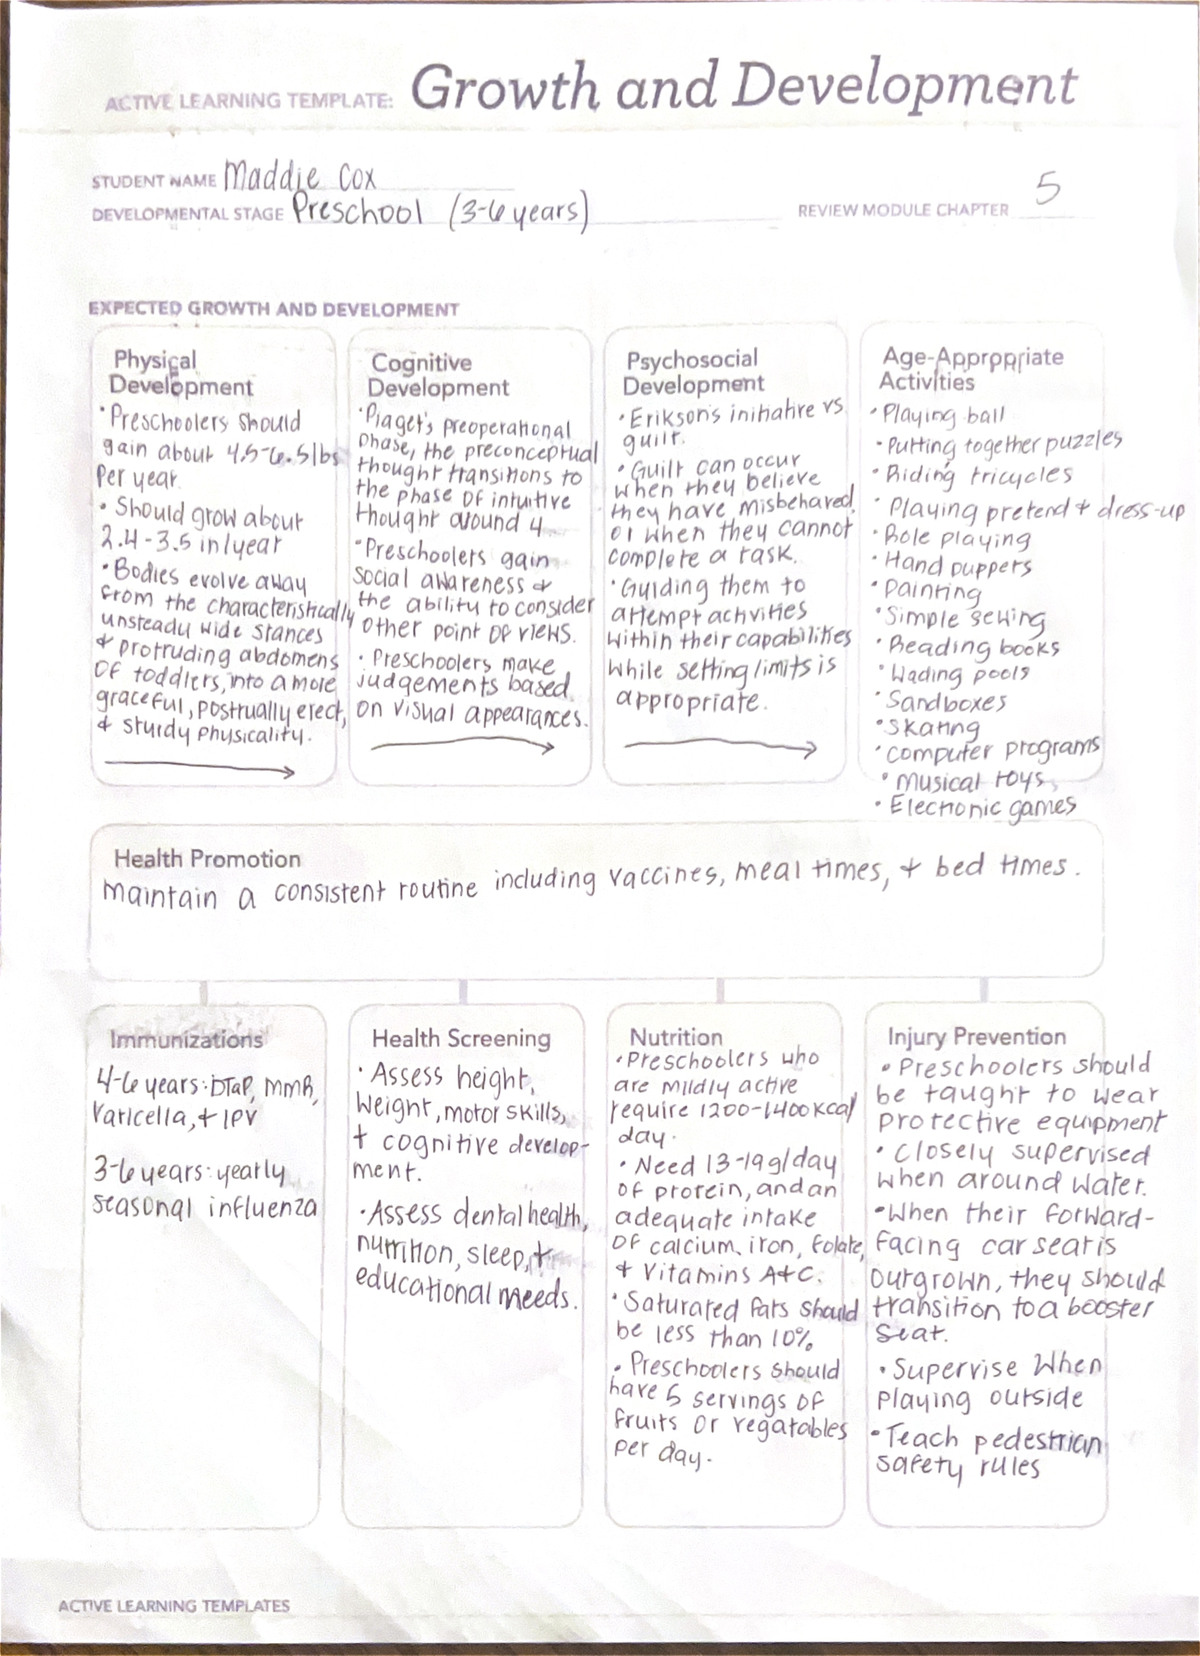 ACTIVE LEARNING TEMPLATE: Growth and Development
STUDENT NAME Maddie Cox
DEVELOPMENTAL STAGE Preschool (3-6 years)
REVIEW MODULE CHAPTER 5
EXPECTED GROWTH AND DEVELOPMENT
Physical
Development
• Preschoolers should
gain about 4.5-6.5lbs
per year.
• Should grow about
2.4-3.5 in/year
• Bodies evolve away
from the characteristically
unsteady wide stances
& protruding abdomens
of toddlers, into a more
graceful, posturally erect,
& sturdy physicality.
Cognitive
Development
• Piaget's preoperational
phase, the preconceptual
thought transitions to
the phase of intuitive
thought around 4
• Preschoolers gain
social awareness &
the ability to consider
other point of views.
• Preschoolers make
judgements based
on visual appearances.
Psychosocial
Development
• Erikson's initiative vs
guilt.
• Guilt can occur
when they believe
they have misbehaved
or when they cannot
complete a task.
• Guiding them to
attempt activities
within their capabilities
while setting limits is
appropriate.
Age-Appropriate
Activities
• Playing ball
• Putting together puzzles
• Riding tricycles
• Playing pretend & dress-up
• Role playing
• Hand puppets
• Painting
• Simple sewing
• Reading books
• Wading pools
• Sandboxes
• Skating
• Computer programs
• Musical toys
• Electronic games
Health Promotion
maintain a consistent routine including vaccines, meal times, & bed times.
Immunizations
4-6 years: DTaP, MMR,
Varicella, & IPV
3-6 years: yearly
seasonal influenza
Health Screening
• Assess height,
weight, motor skills,
& cognitive develop-
ment.
• Assess dental health,
nutrition, sleep, &
educational needs.
Nutrition
• Preschoolers who
are mildly active
require 1200-1400kcal/
day.
• Need 13-19g/day
of protein, and an
adequate intake
of calcium, iron, folate,
& vitamins A&C.
• Saturated fats should
be less than 10%
• Preschoolers should
have 5 servings of
fruits or vegatables
per day.
Injury Prevention
• Preschoolers should
be taught to wear
protective equipment
• Closely supervised
when around water.
• When their forward-
facing car seat is
outgrown, they should
transition to a booster
seat.
• Supervise when
playing outside
• Teach pedestrian
safety rules
ACTIVE LEARNING TEMPLATES